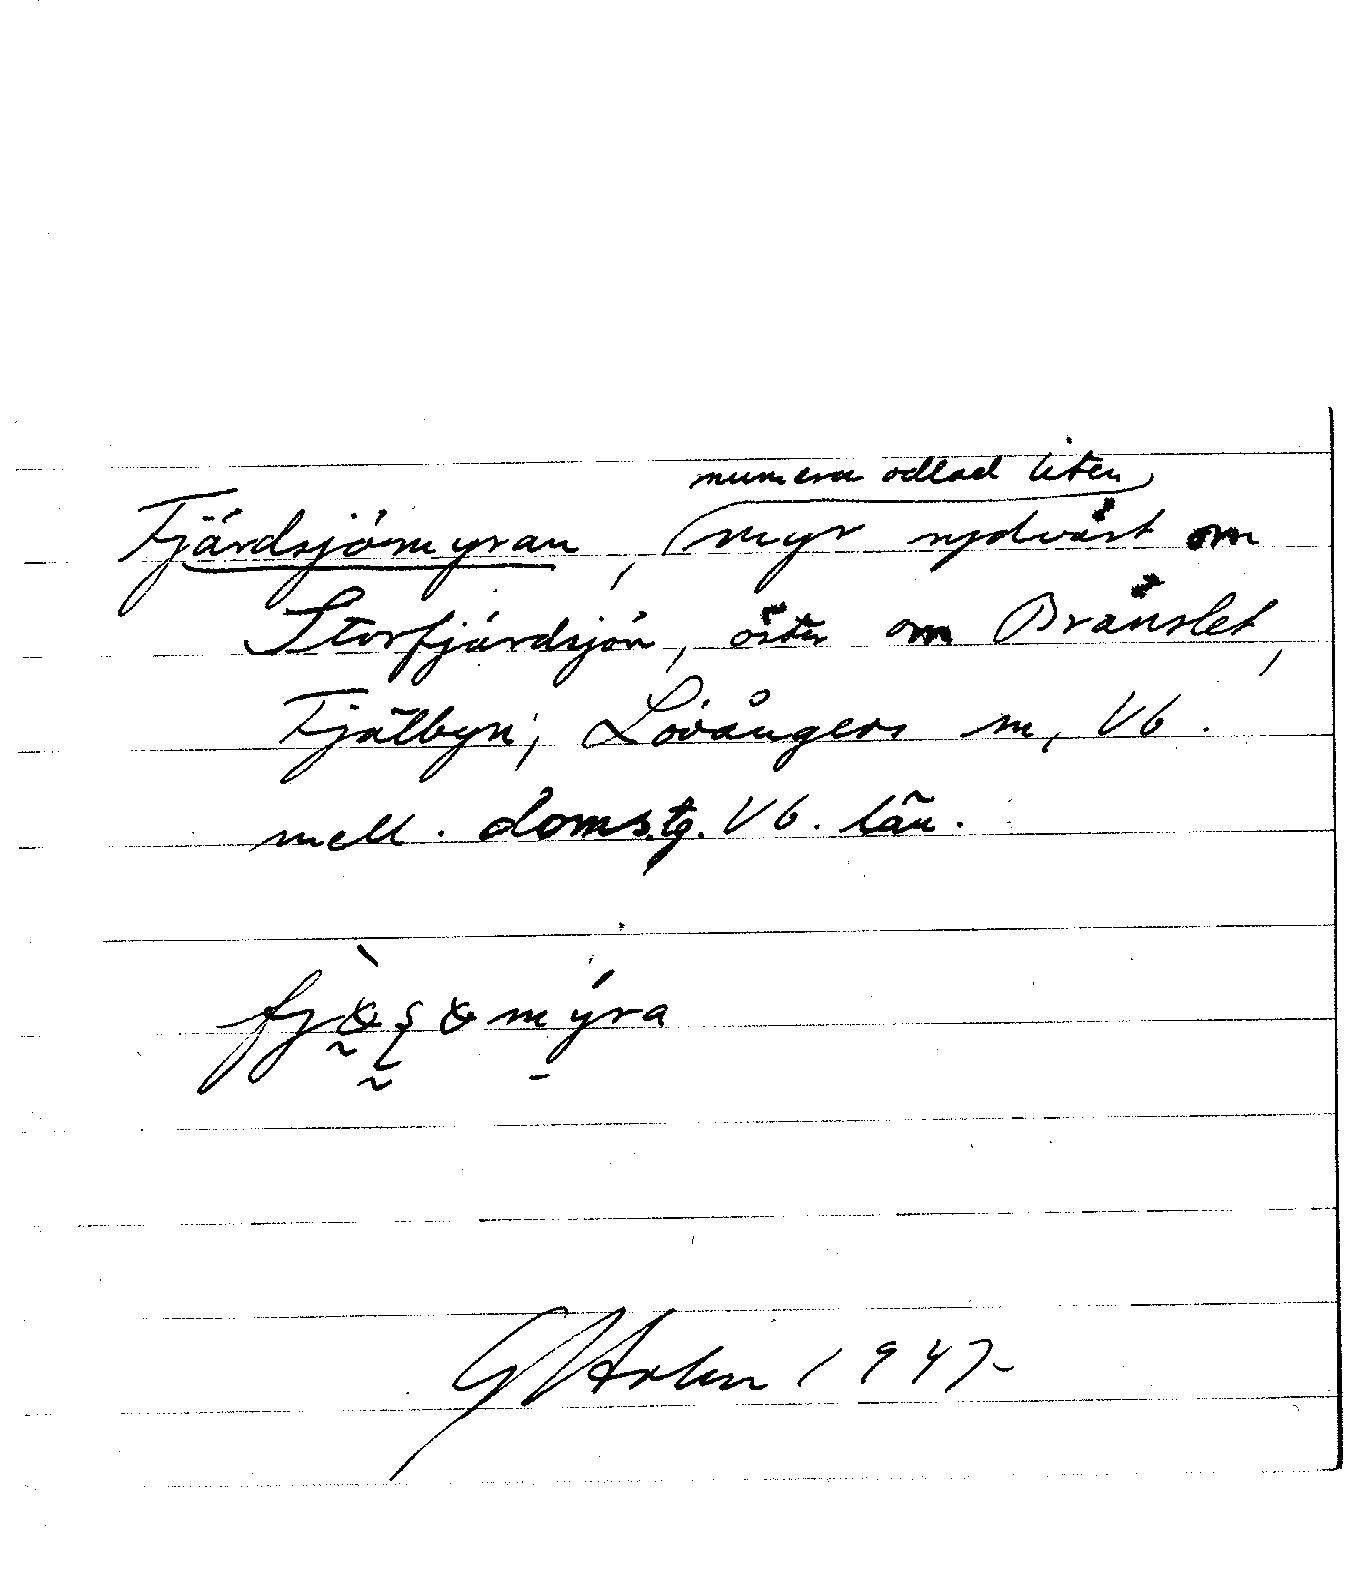 numera odlad liten
Fjärdsjömyran, myr nordväst om
Storfjärdsjön, öster om Bränslet,
Fjälbyn, Lövångers sn, Vb.
mell. doms.tg. Vb. län.
1947